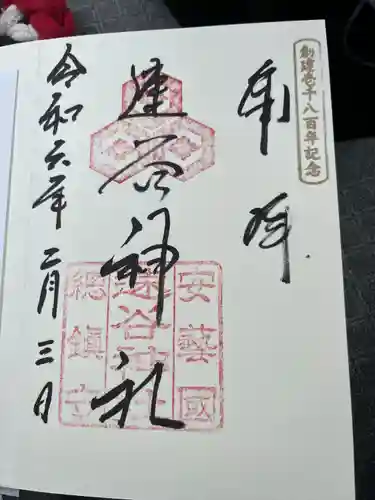 創建壱千八百年記念
奉拝
速谷神社
令和六年二月三日
安藝國
速谷神社
総鎮守